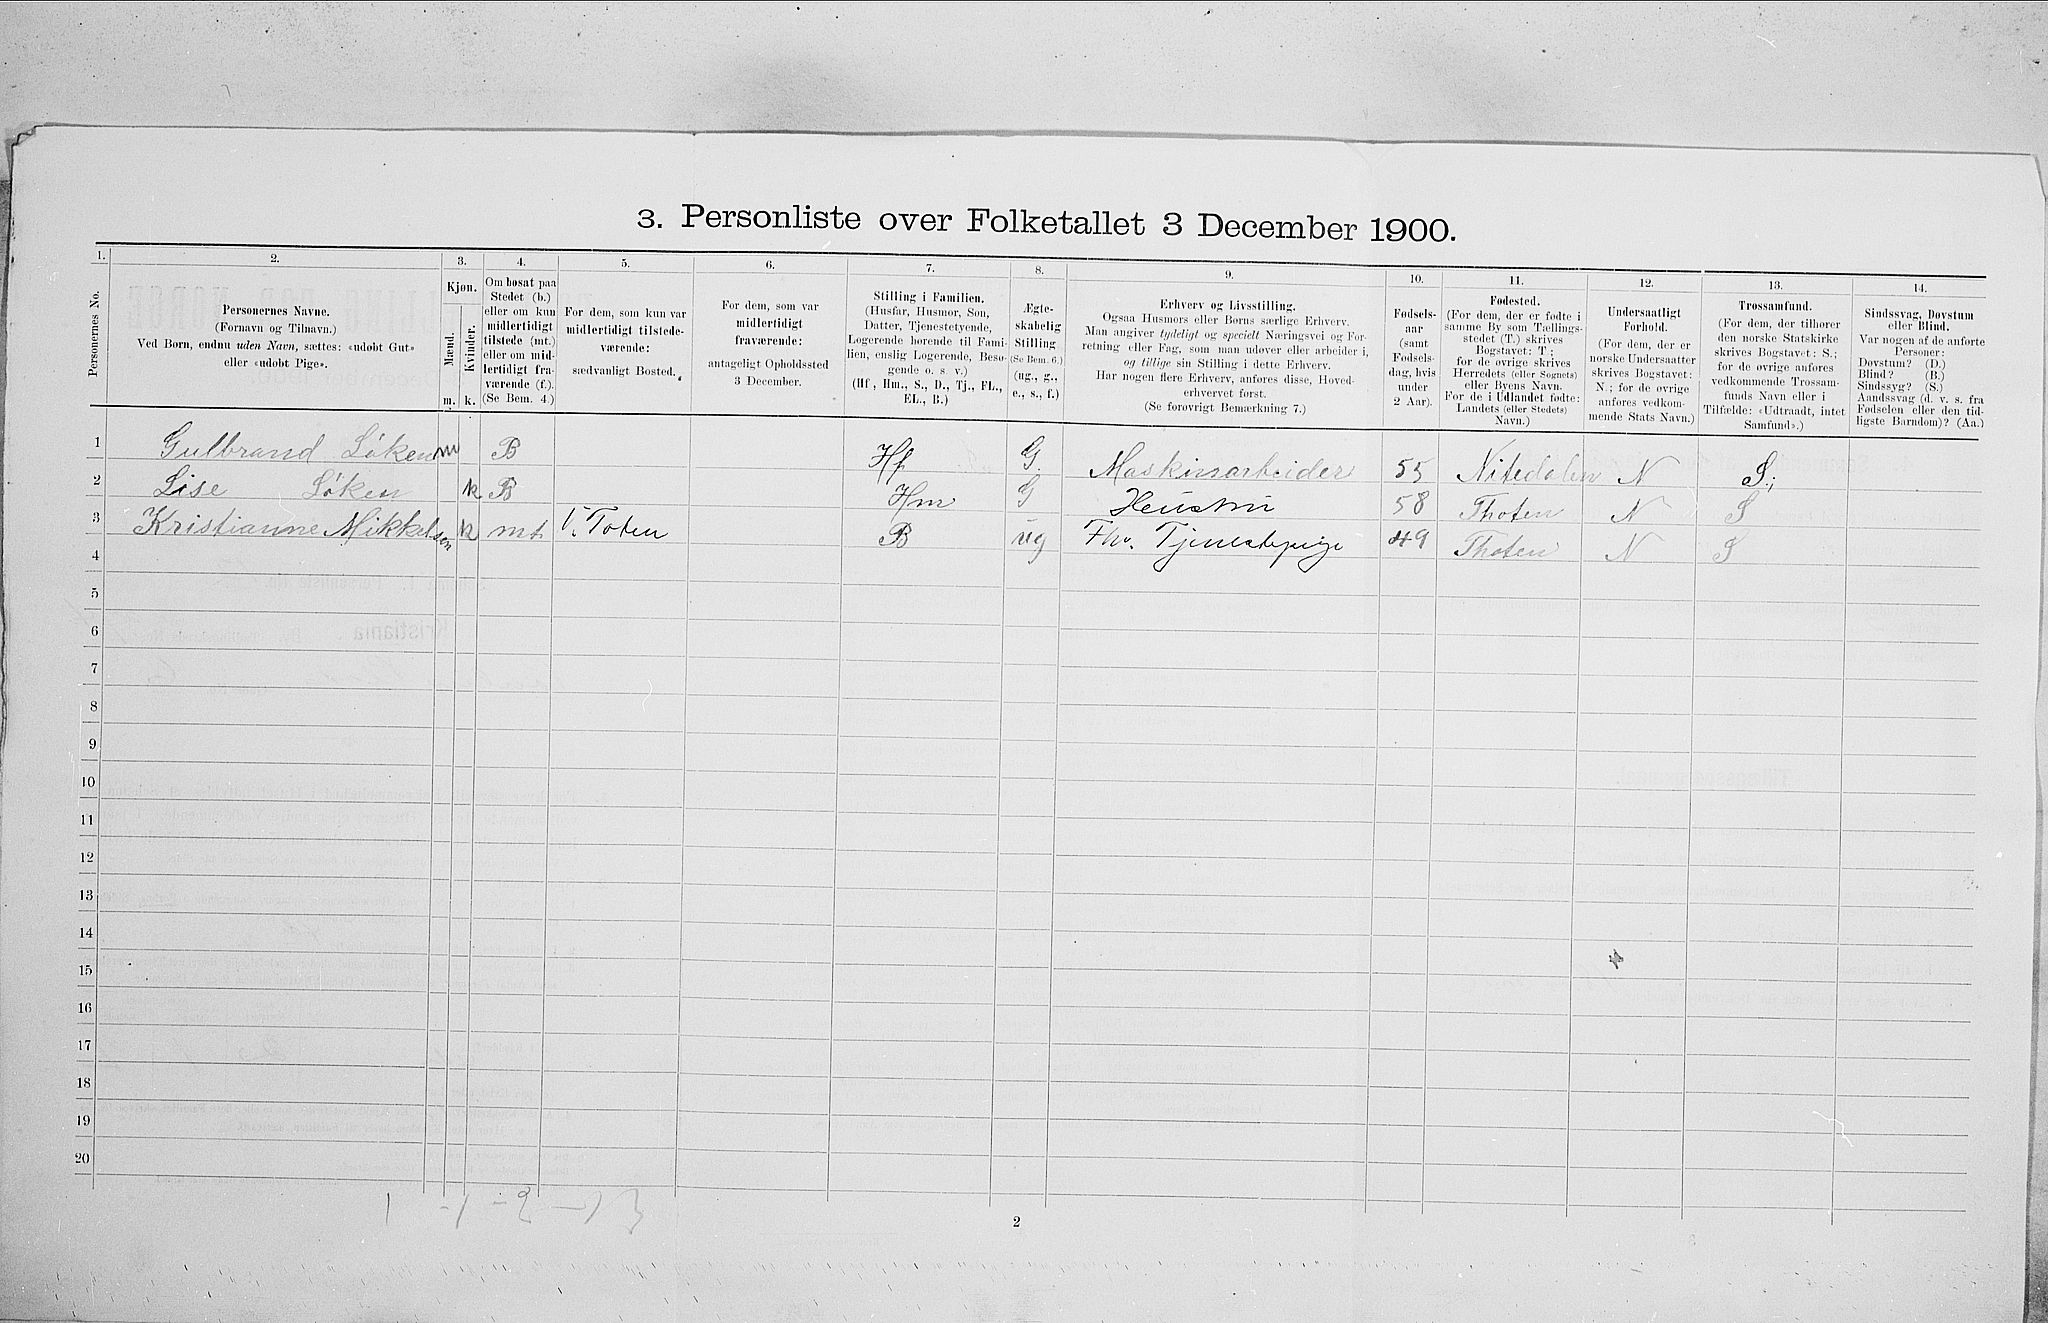 3. Personliste over Folketallet 3 December 1900.
1. 2. 3. 4. 5. 6. 7. 8. 9. 10. 11. 12. 13. 14.
Personernes No.
Personernes Navne.
(Fornavn og Tilnavn.)
Ved Børn, endnu uden Navn, sættes: «udøbt Gut»
eller «udøbt Pige».
Kjøn.
Mænd.
Kvinder.
m. k.
Om bosat paa
Stedet (b.)
eller om kun
midlertidigt
tilstede (mt.)
eller om mid-
lertidigt fra-
værende (f.).
(Se Bem. 4.)
For dem, som kun var
midlertidigt tilstede-
værende:
sædvanligt Bosted.
For dem, som var
midlertidigt
fraværende:
antageligt Opholdssted
3 December.
Stilling i Familien.
(Husfar, Husmor, Søn,
Datter, Tjenestetyende,
Logerende hørende til Fami-
lien, enslig Logerende, Besø-
gende o. s. v.)
(Hf., Hm., S., D., Tj., FL.,
EL., B.)
Ægte-
skabelig
Stilling
(Se Bem. 6.)
(ug., g.,
e., s., f.)
Erhverv og Livsstilling.
Ogsaa Husmors eller Børns særlige Erhverv.
Man angiver tydeligt og specielt Næringsvei og For-
retning eller Fag, som man udøver eller arbeider i,
og tillige sin Stilling i dette Erhverv.
Har nogen flere Erhverv, anføres disse, Hoved-
erhvervet først.
(Se forøvrigt Bemærkning 7.)
Fødsels-
aar
(samt
Fødsels-
dag, hvis
under
2 Aar).
Fødested.
(For dem, der er fødte i
samme By som Tællings-
stedet (T.) skrives
Bogstavet: T.;
for de øvrige skrives
Herredets (eller Sognets)
eller Byens Navn.
For de i Udlandet fødte:
Landets (eller Stedets)
Navn.)
Undersaatligt
Forhold.
(For dem, der er
norske Undersaatter
skrives Bogstavet:
N.; for de øvrige
anføres vedkom-
mende Stats Navn.)
Trossamfund.
(For dem, der tilhører
den norske Statskirke
skrives Bogstavet: S.;
for de øvrige anføres
vedkommende Trossam-
funds Navn eller i
Tilfælde: «Udtraadt, intet
Samfund».)
Sindssvag, Døvstum
eller Blind.
Var nogen af de anførte
Personer:
Døvstum? (D.)
Blind? (B.)
Sindssyg? (S.)
Aandssvag (d. v. s. fra
Fødselen eller den tid-
ligste Barndom)? (Aa.)
1 Gulbrand Løken m B Hf G. Maskinsarbeider 55 Nitedalen N S.;
2 Lise Løken k B Hm G Heustru 58 Thoten N S
3 Kristianne Mikkelsen k mt V. Toten B ug Fhv. Tjenestepige 49 Thoten N S
4
5
6
7
8
9
10
11
12
13
14
15
16
17
18
19
20
2